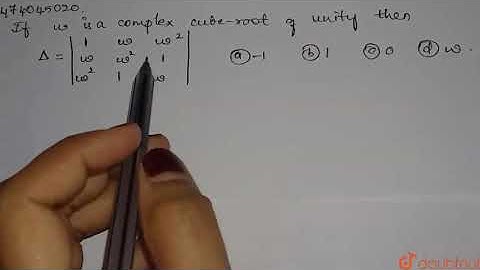 474045020.
If w is a complex cube-root of unity then
Δ = | 1 w w² |
| w w² 1 | ⓐ -1 ⓑ 1 ⓒ 0 ⓓ w.
| w² 1 w |
doubtnut